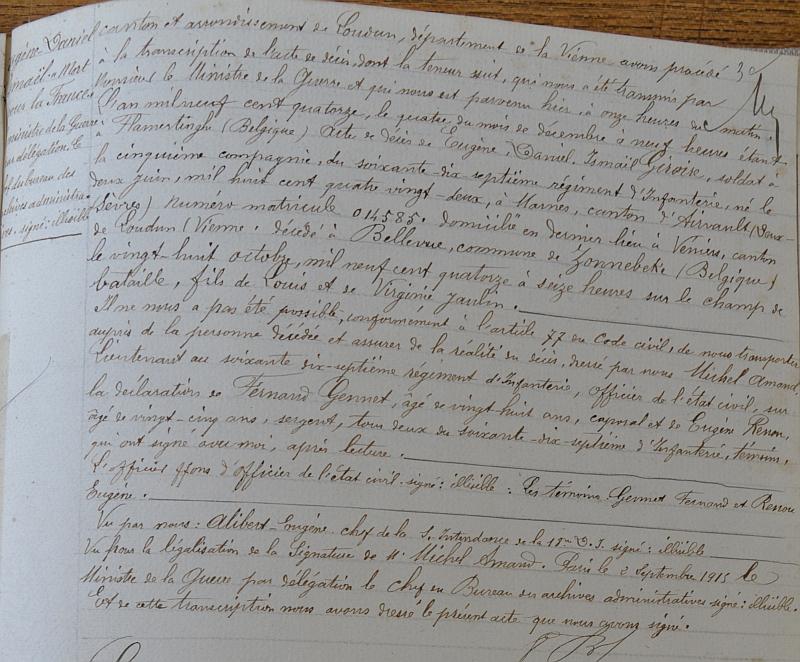 Eugène Daniel
Ismaël - Mort
pour la France
ministre de la Guerre
par délégation. Le
chef du bureau des
archives administra-
tives, signé: illisible
canton et arrondissement de Loudun, département de la Vienne avons procédé
à la transcription de l'acte de décès, dont la teneur suit, qui nous a été transmis par
Monsieur le Ministre de la Guerre et qui nous est parvenu hier, à onze heures du matin.
L'an mil neuf cent quatorze, le quatre du mois de décembre à neuf heures étant
à Flamertinghe (Belgique) Acte de décès de Eugène, Daniel, Ismaël Giroire, soldat à
la cinquième compagnie, du soixante-dix-septième régiment d'Infanterie, né le
deux juin, mil, huit cent quatre vingt-deux, à Marnes, canton d'Airvault (Deux-
Sèvres) numéro matricule 014585. domicilié en dernier lieu à Veniers, canton
de Loudun (Vienne. décédé à Bellevue, commune de Zonnebeke (Belgique)
le vingt-huit octobre, mil neuf cent quatorze à seize heures sur le champ de
bataille, fils de Louis et de Virginie Jaulin.
Il ne nous a pas été possible, conformément à l'article 77 du Code civil, de nous transporter
auprès de la personne décédée et assurer de la réalité du décès, dressé par nous Michel Amand,
Lieutenant au soixante dix-septième régiment d'Infanterie, officier de l'état civil, sur
la déclaration de Fernand Gennet, âgé de vingt-huit ans, caporal et de Eugène Renou,
âgé de vingt-cinq ans, sergent, tous deux du soixante-dix-septième d'Infanterie, témoins,
qui ont signé avec moi, après lecture.
L'officier ffons d'officier de l'état civil. signé: illisible: Les témoins Gennet Fernand et Renou
Eugène.
Vu par nous: Alibert-Eugène. chef de la S. Intendance de la 18me D. I. signé: illisible
Vu pour la légalisation de la Signature de Mr Michel Amand. Paris le 2 Septembre 1915 le
Ministre de la Guerre par délégation le chef du Bureau des archives administratives signé: illisible.
Et de cette transcription nous avons dressé le présent acte que nous avons signé.